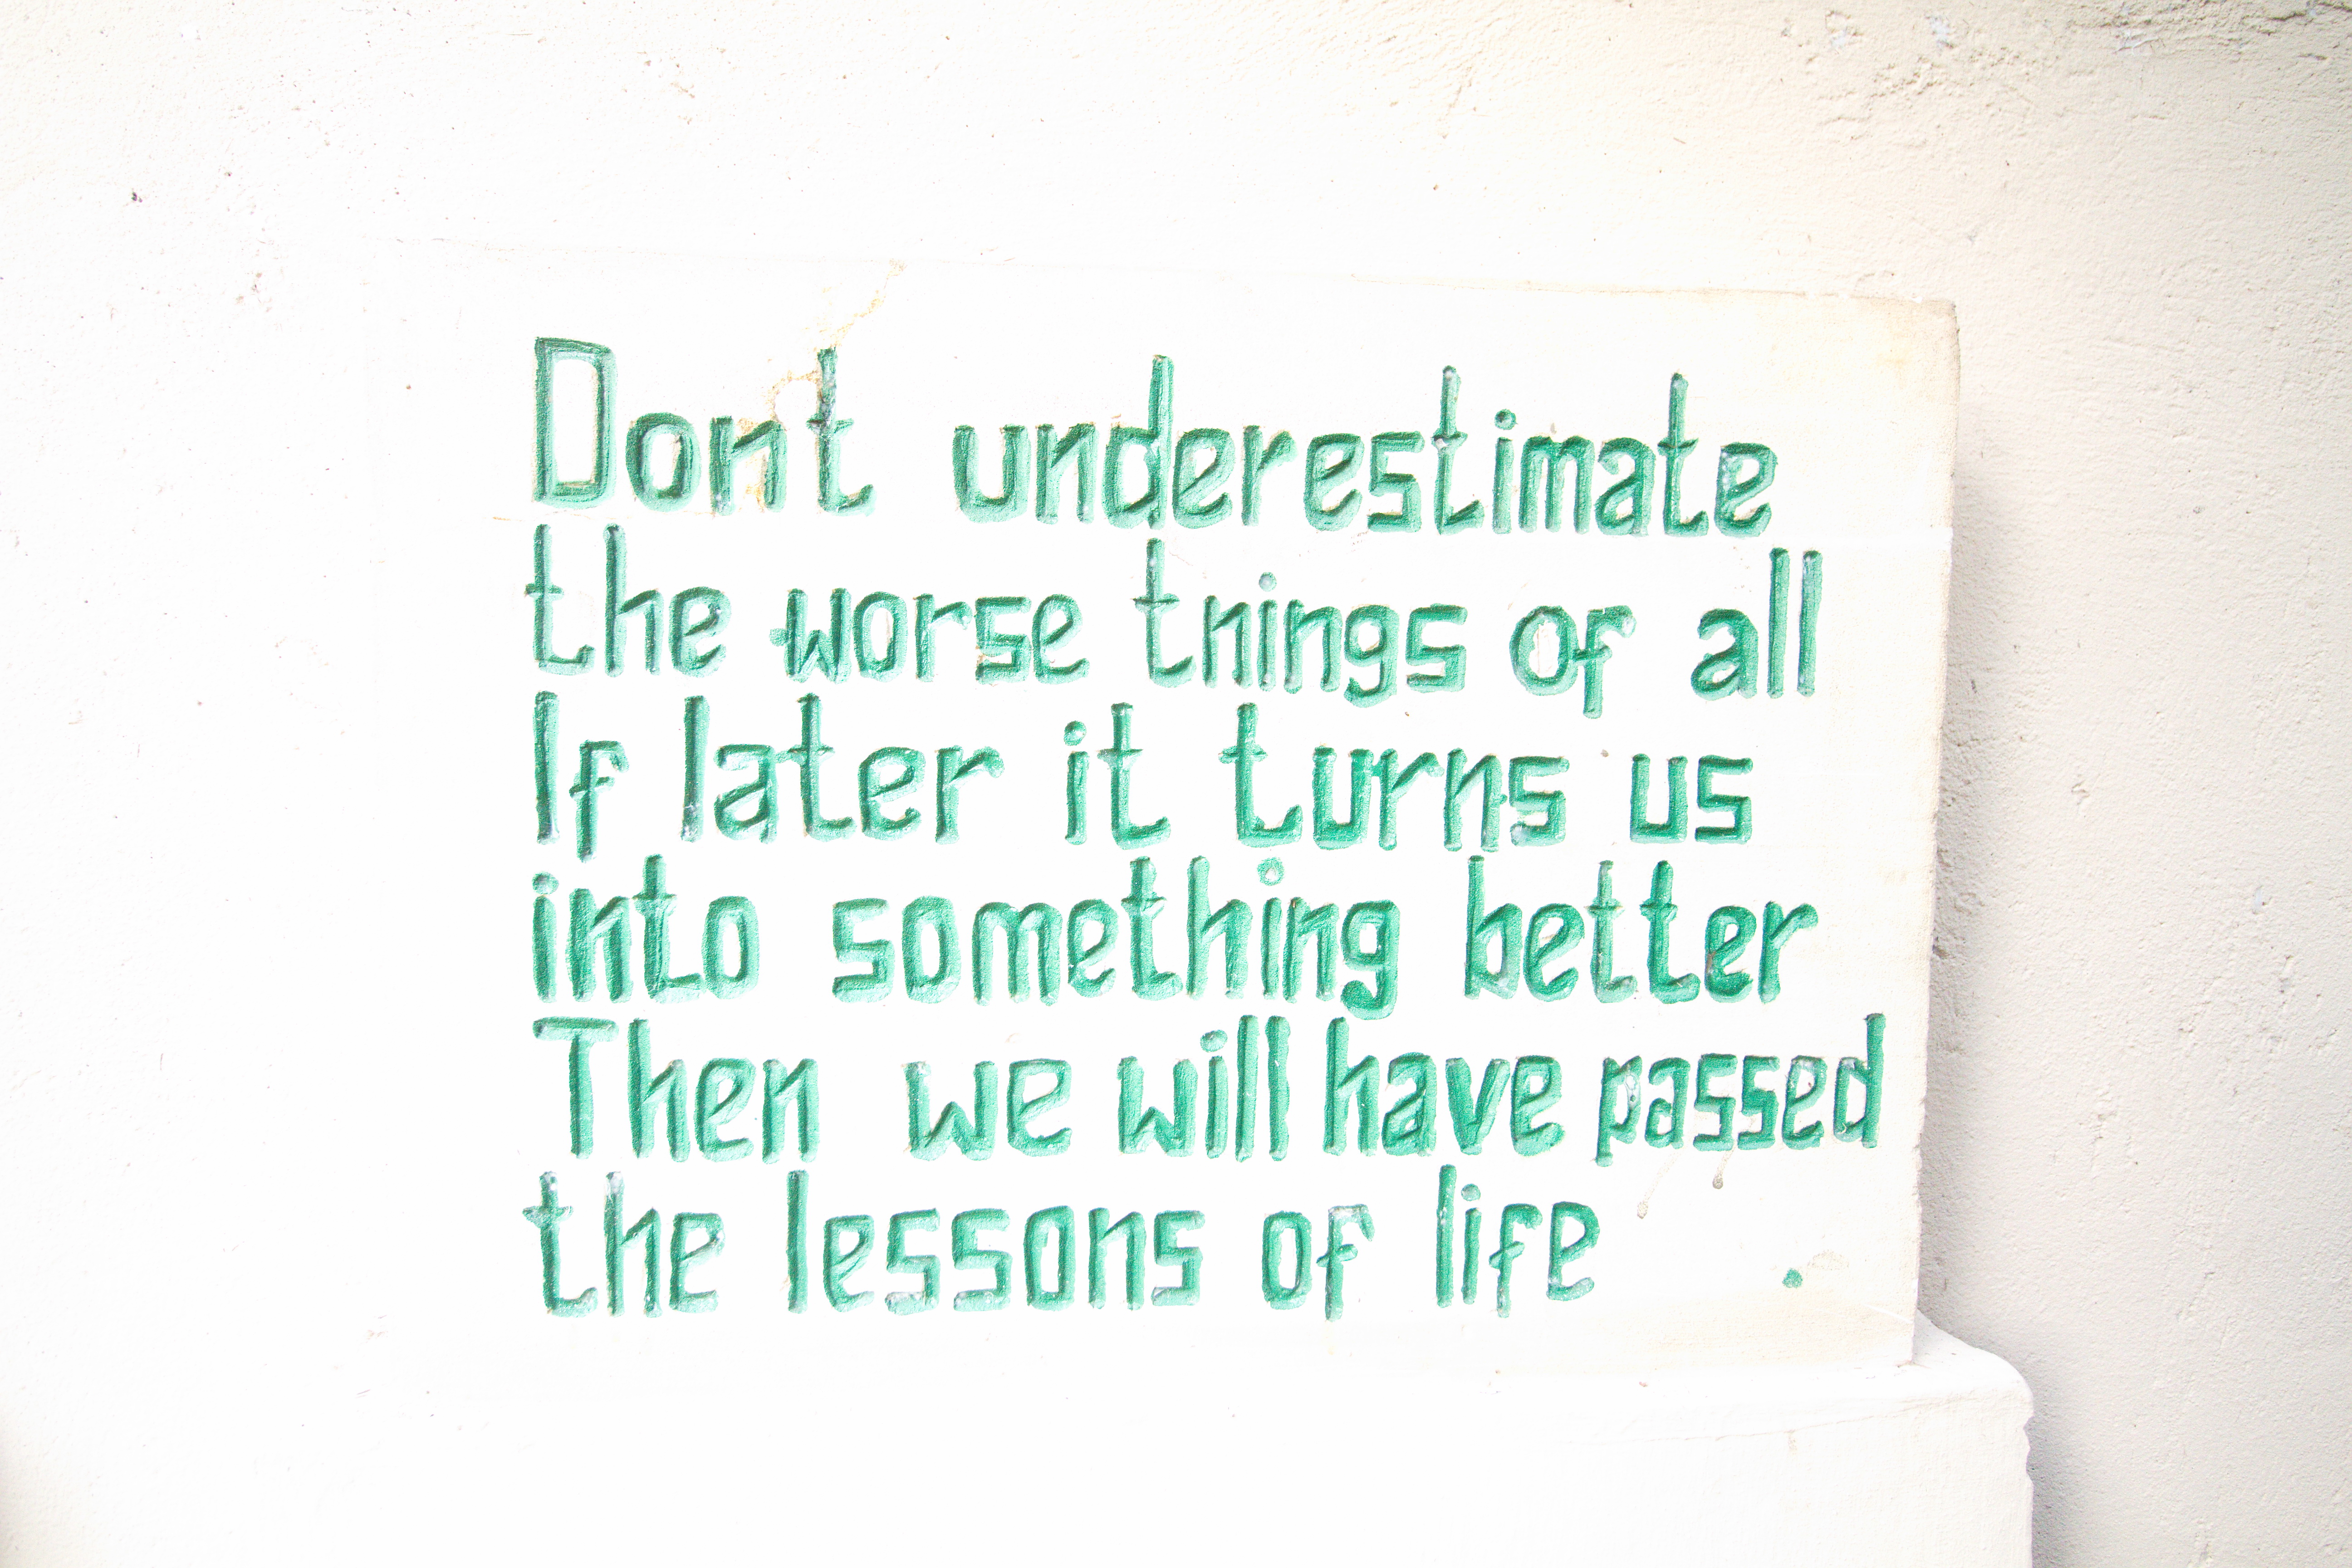 Dont underestimate
the worse things of all
If later it turns us
into something better
Then we will have passed
the lessons of life .